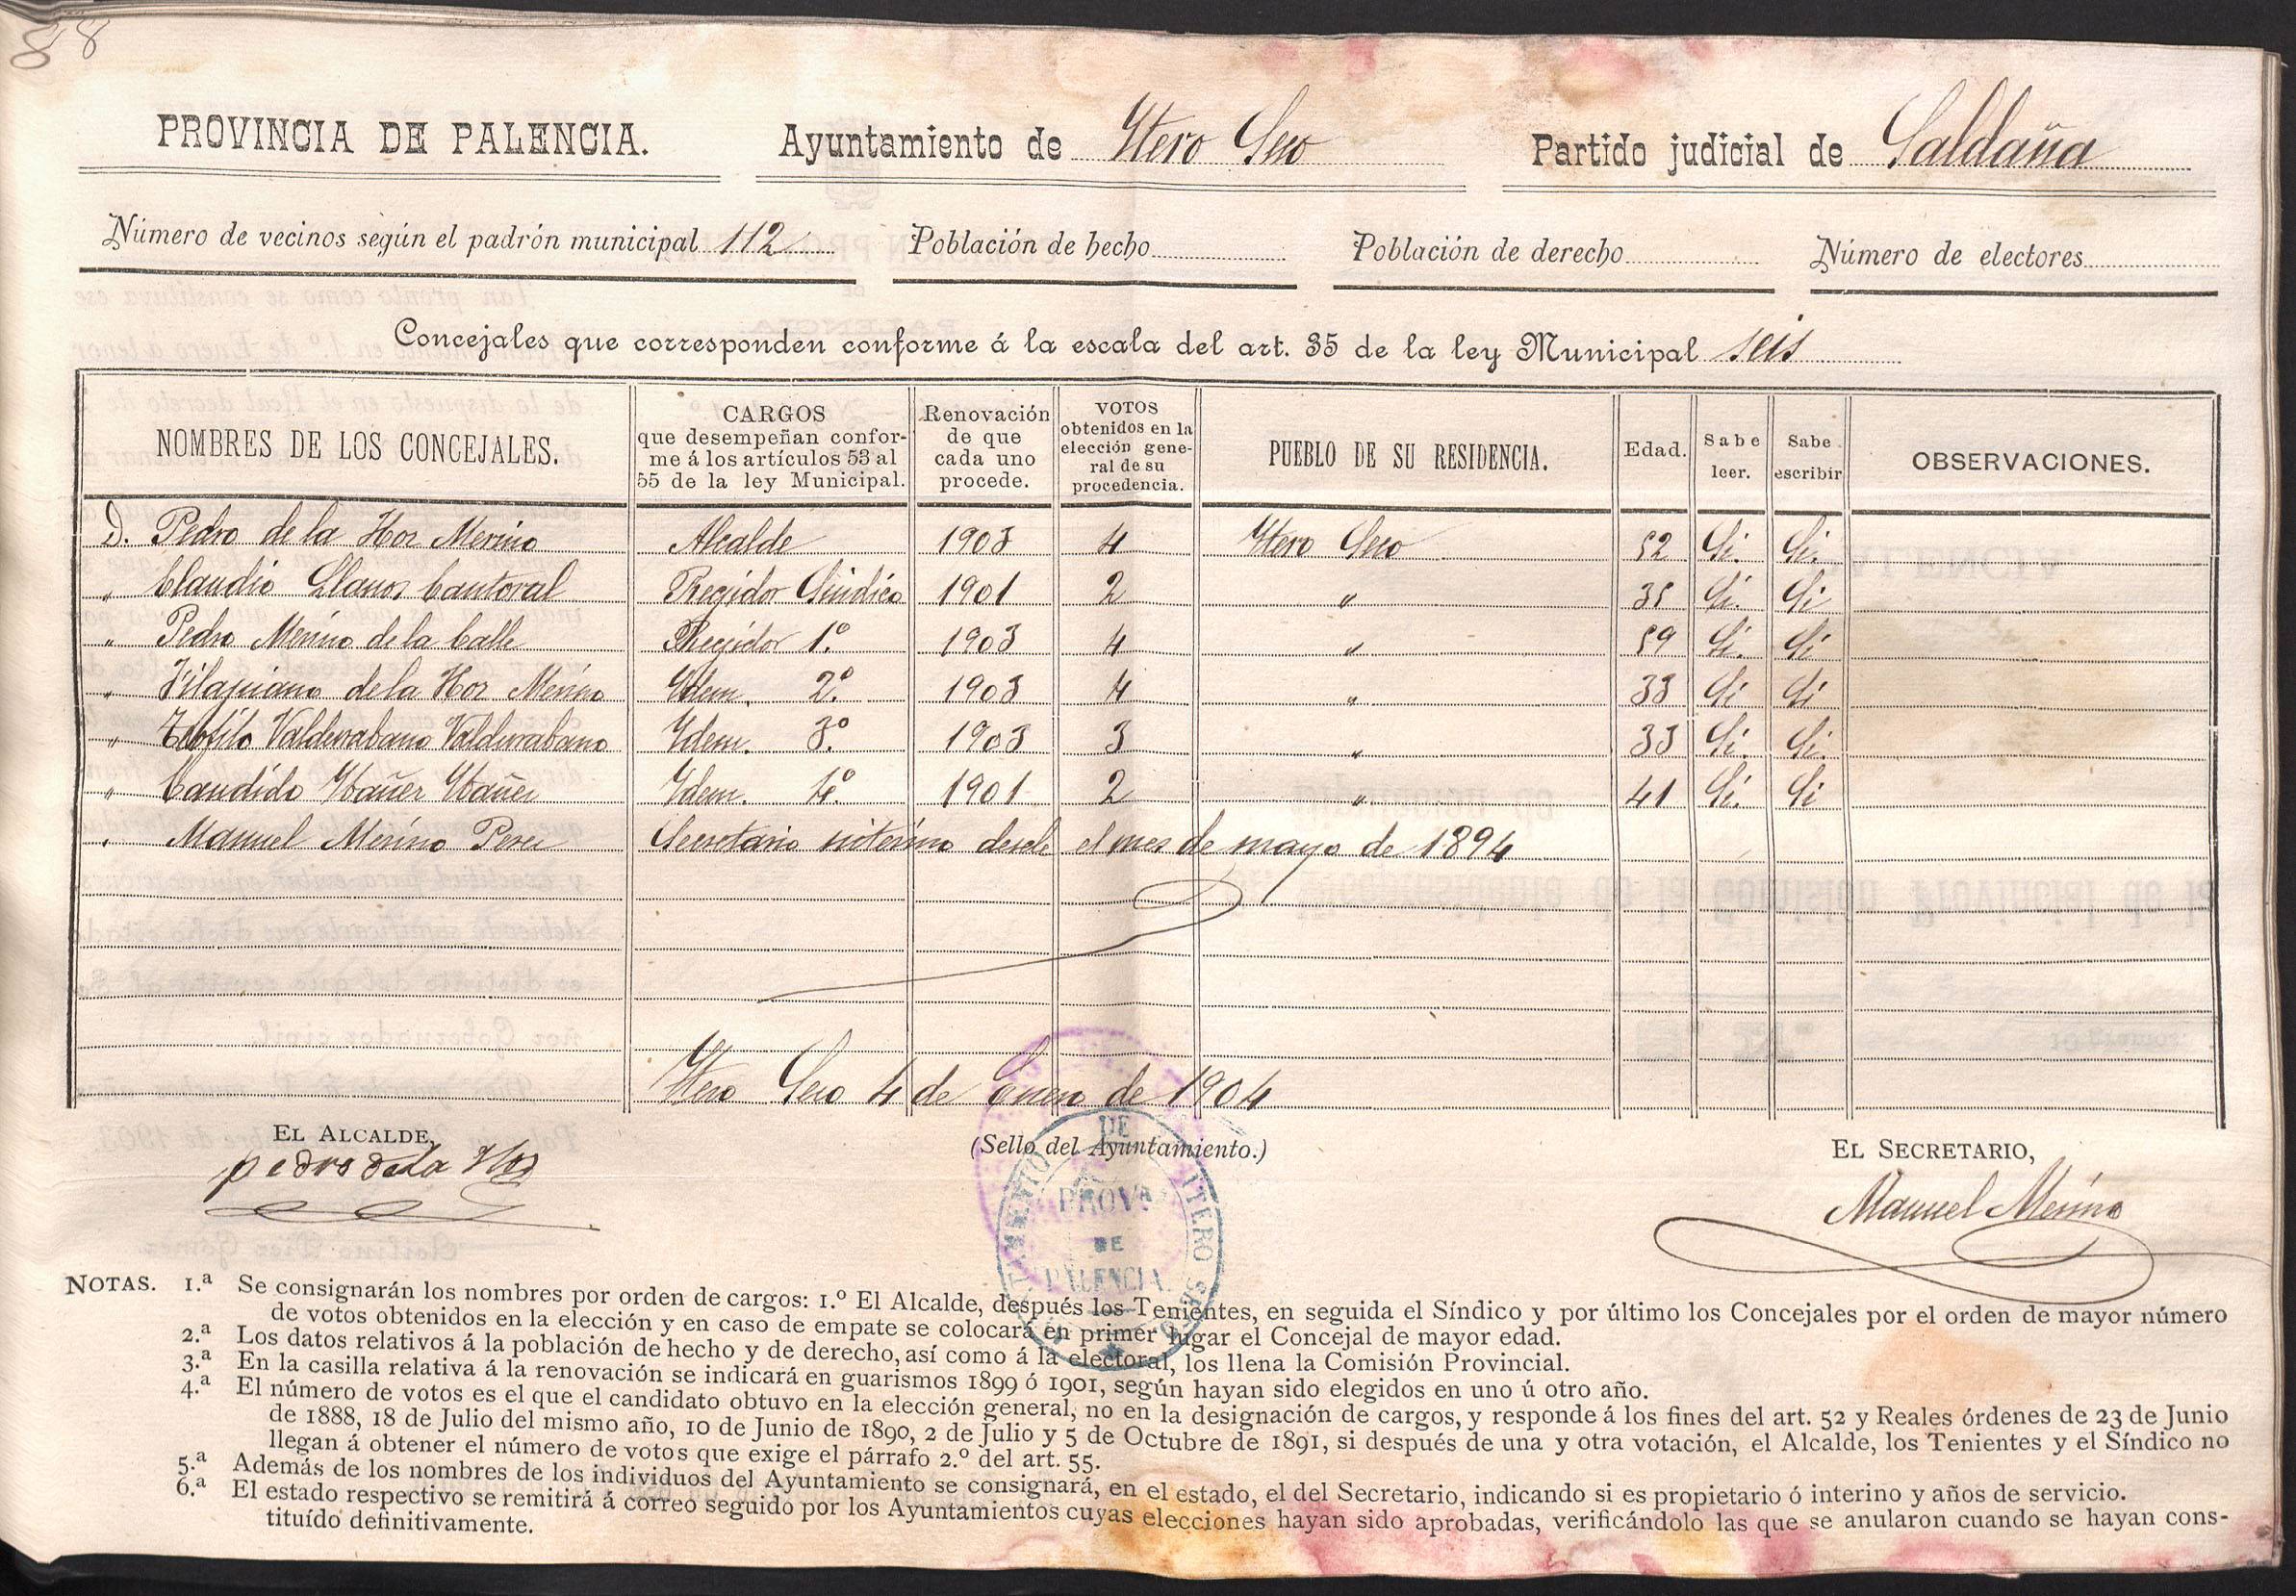 88
PROVINCIA DE PALENCIA. Ayuntamiento de Ytero Seco Partido judicial de Saldaña
Número de vecinos según el padrón municipal 112 Población de hecho Población de derecho Número de electores
Concejales que corresponden conforme á la escala del art. 35 de la ley Municipal seis
NOMBRES DE LOS CONCEJALES. CARGOS que desempeñan conforme á los artículos 53 al 55 de la ley Municipal. Renovación de que cada uno procede. VOTOS obtenidos en la elección general de su procedencia. PUEBLO DE SU RESIDENCIA. Edad. Sabe leer. Sabe escribir OBSERVACIONES.
D. Pedro de la Hoz Merino Alcalde 1903 4 Ytero Seco 52 Si. Si.
" Claudio Llanos Cantoral Regidor Sindico 1901 2 " 35 Si. Si
" Pedro Merino de la Calle Regidor 1º 1903 4 " 59 Si. Si
" de la Hoz Merino Ydem. 2º 1903 4 " 33 Si Si
" Teofilo Valderrabano Valderrabano Ydem. 3º 1903 3 " 33 Si. Si.
" Candido Ybañez Ybañez Ydem. 4º 1901 2 " 41 Si. Si
" Manuel Merino Perez Secretario interino desde el mes de mayo de 1894
Ytero Seco 4 de Enero de 1904
EL ALCALDE, (Sello del Ayuntamiento.) EL SECRETARIO,
pedro de la Hoz
Manuel Merino
AYUNTAMIENTO DE ITERO SECO
PROVª
DE
PALENCIA
NOTAS. 1.ª Se consignarán los nombres por orden de cargos: 1.º El Alcalde, después los Tenientes, en seguida el Síndico y por último los Concejales por el orden de mayor número
de votos obtenidos en la elección y en caso de empate se colocará en primer lugar el Concejal de mayor edad.
2.ª Los datos relativos á la población de hecho y de derecho, así como á la electoral, los llena la Comisión Provincial.
3.ª En la casilla relativa á la renovación se indicará en guarismos 1899 ó 1901, según hayan sido elegidos en uno ú otro año.
4.ª El número de votos es el que el candidato obtuvo en la elección general, no en la designación de cargos, y responde á los fines del art. 52 y Reales órdenes de 23 de Junio
de 1888, 18 de Julio del mismo año, 10 de Junio de 1890, 2 de Julio y 5 de Octubre de 1891, si después de una y otra votación, el Alcalde, los Tenientes y el Síndico no
llegan á obtener el número de votos que exige el párrafo 2.º del art. 55.
5.ª Además de los nombres de los individuos del Ayuntamiento se consignará, en el estado, el del Secretario, indicando si es propietario ó interino y años de servicio.
6.ª El estado respectivo se remitirá á correo seguido por los Ayuntamientos cuyas elecciones hayan sido aprobadas, verificándolo las que se anularon cuando se hayan cons-
tituído definitivamente.